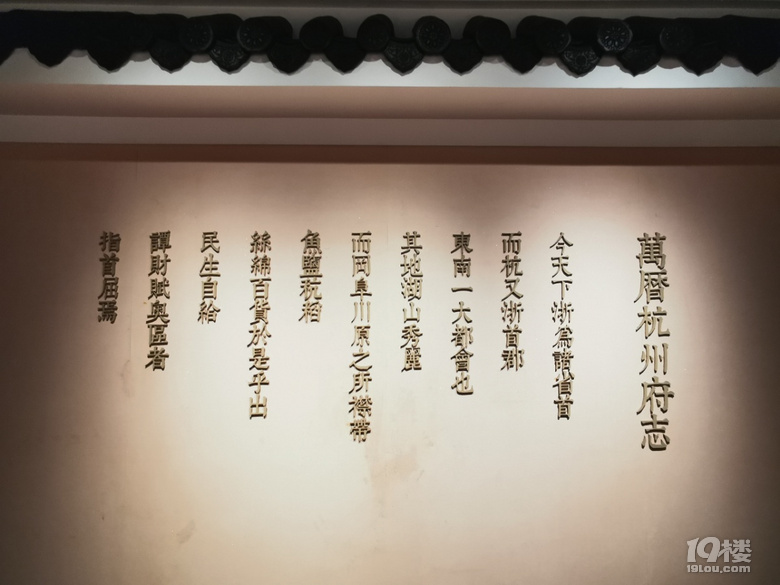 萬曆杭州府志
今天下浙為諸省首
而杭又浙首郡
東南一大都會也
其地湖山秀麗
而岡阜川原之所襟帶
魚鹽秔稻
絲綿百貨於是乎出
民生自給
譚財賦奧區者
指首屈焉
19楼
19lou.com